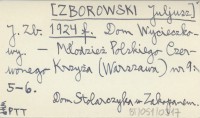 [ZBOROWSKI Juljusz]
J. Zb. 1924 r. Dom Wycieczko-
wy. — Młodzież Polskiego Czer-
wonego Krzyża (Warszawa) nr 9:
5-6.
Dom Stolarczyka w Zakopanem.
PTT